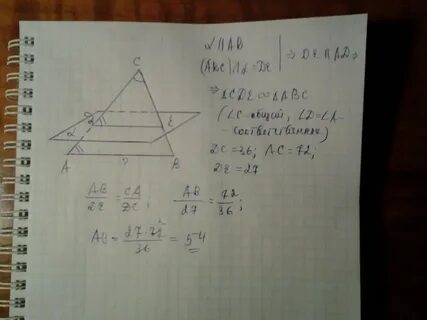 α ∥ AB
(ABC) ∩ α = DE ⇒ DE ∥ AB ⇒
⇒ △CDE ∞ △ABC
(∠C - общий, ∠D = ∠A
- соответственные)
DC = 36; AC = 72;
DE = 27
C
D
E
α
A
B
AB/DE = CA/DC; AB/27 = 72/36;
AB = 27·72/36 = 54